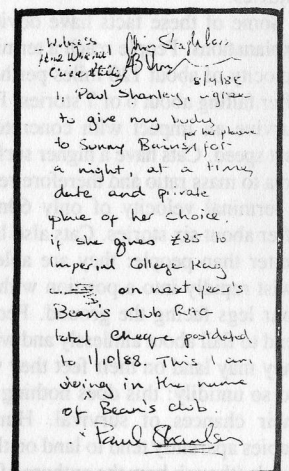 Witness
Chris Stapleton
8/4/88
I, Paul Shanley, agree
to give my body
for her pleasure
to Sunny Bains, for
1 night, at a time,
date and private
place of her choice,
if she gives £85 to
Imperial College Rag
on next year's
Beans Club RAG
total. Cheque postdated
to 1/10/88. This I am
doing in the name
of Bean's club.
Paul Shanley